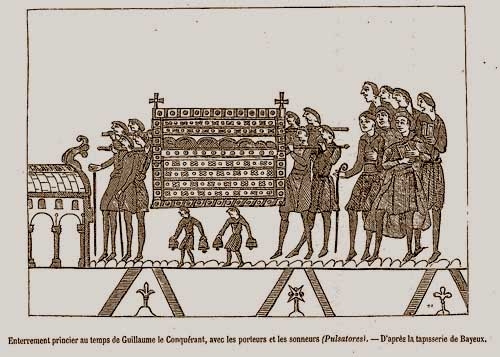 Enterrement princier au temps de Guillaume le Conquérant, avec les porteurs et les sonneurs (Pulsatores). — D'après la tapisserie de Bayeux.